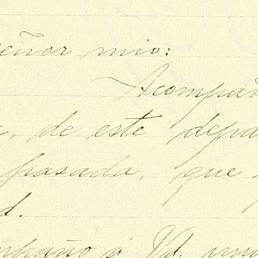 eñor mio:
Acompañ
, de este depa
pasada, que
d.
mpaño á Vd. un